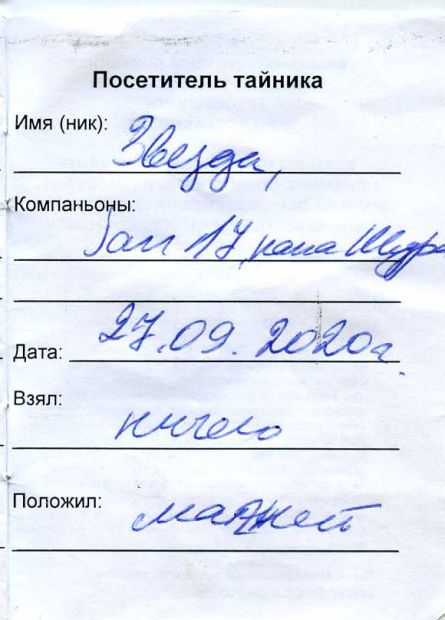 Посетитель тайника
Имя (ник):
Звезда,
Компаньоны:
17, папа Шура
27.09.2020г.
Дата:
Взял:
ничего
Положил:
магнит